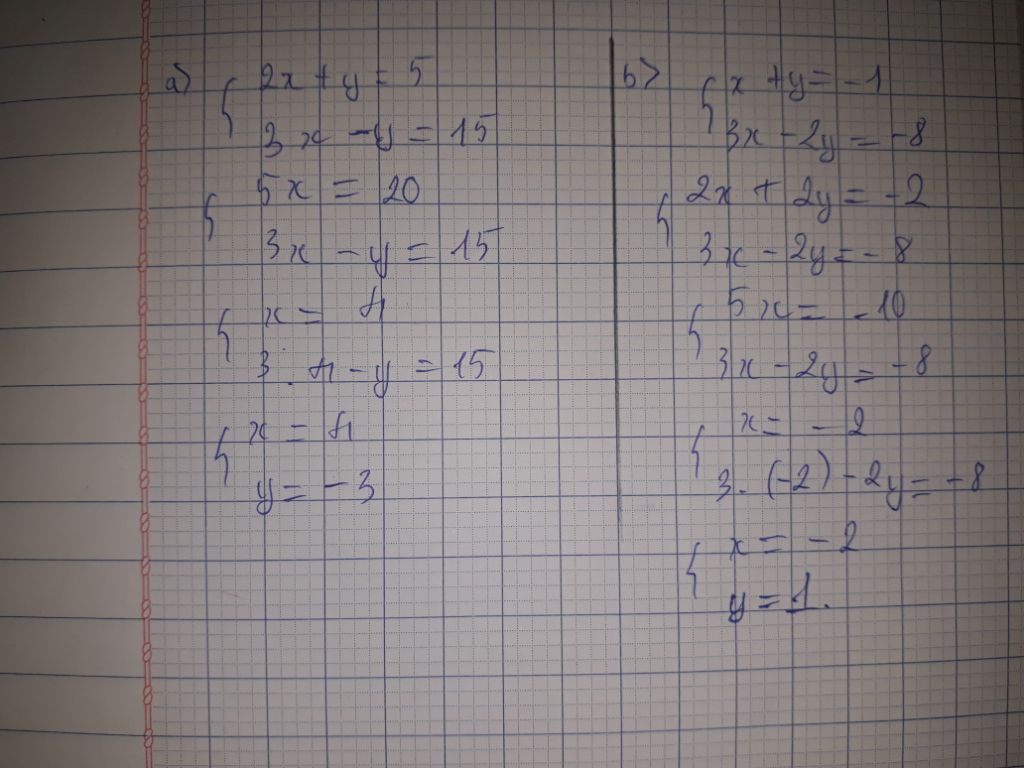 a) { 2x + y = 5
3x - y = 15
{ 5x = 20
3x - y = 15
{ x = 4
3 . 4 - y = 15
{ x = 4
y = -3
b) { x + y = -1
3x - 2y = -8
{ 2x + 2y = -2
3x - 2y = -8
{ 5x = -10
3x - 2y = -8
{ x = -2
3. (-2) - 2y = -8
{ x = -2
y = 1.